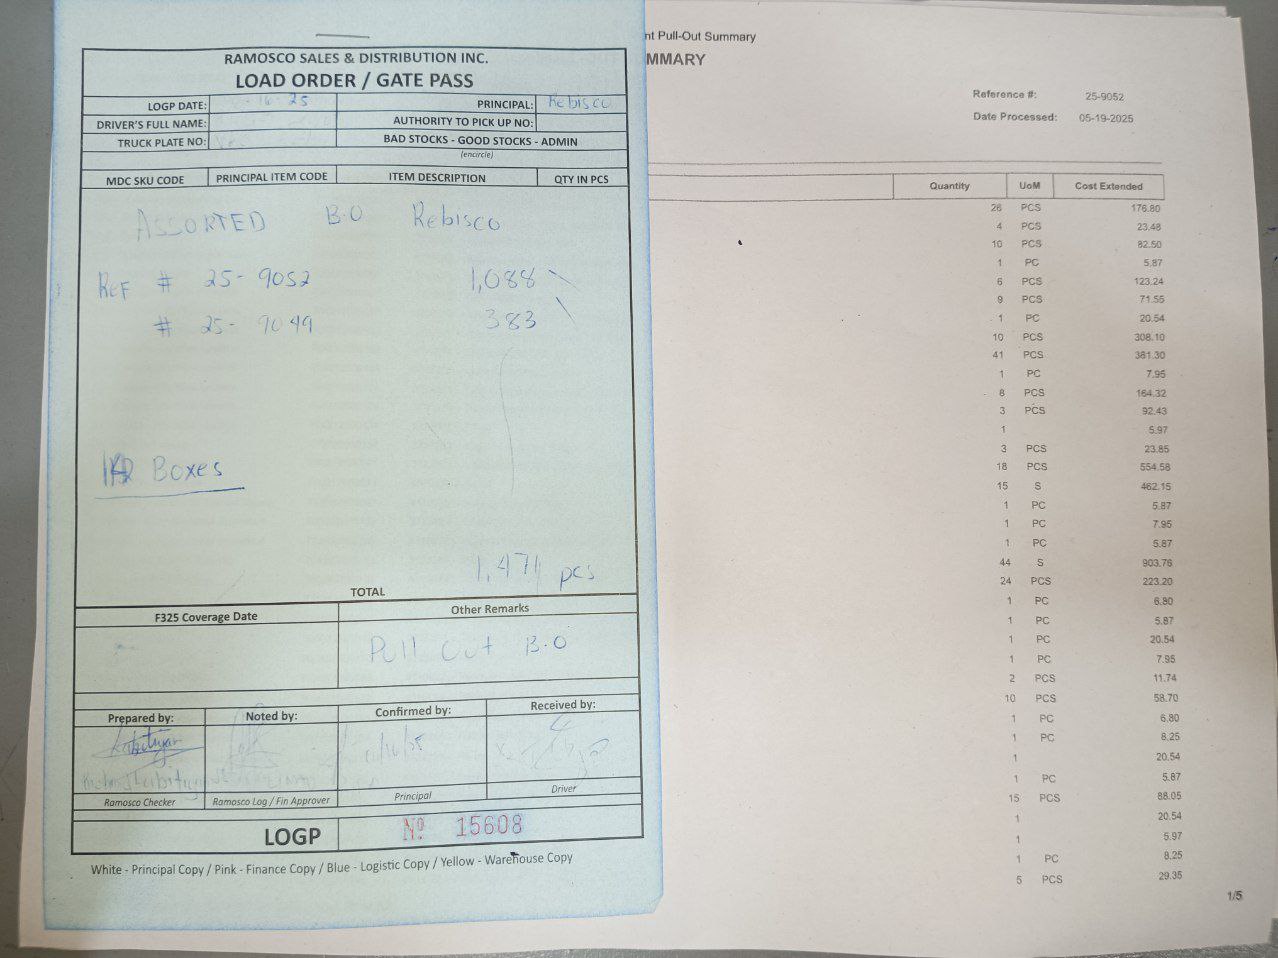 RAMOSCO SALES & DISTRIBUTION INC.
LOAD ORDER / GATE PASS
LOGP DATE: 16-25 PRINCIPAL: Rebisco
DRIVER'S FULL NAME: AUTHORITY TO PICK UP NO:
TRUCK PLATE NO: BAD STOCKS - GOOD STOCKS - ADMIN
(encircle)
MDC SKU CODE PRINCIPAL ITEM CODE ITEM DESCRIPTION QTY IN PCS
ASSORTED B.O Rebisco
REF # 25-9052 1,088
# 25-9049 383
Boxes
1,471 pcs
TOTAL
F325 Coverage Date Other Remarks
Pull Out B.O
Prepared by: Noted by: Confirmed by: Received by:
Ramosco Checker Ramosco Log / Fin Approver Principal Driver
LOGP Nº 15608
White - Principal Copy / Pink - Finance Copy / Blue - Logistic Copy / Yellow - Warehouse Copy
nt Pull-Out Summary
MMARY
Reference #: 25-9052
Date Processed: 05-19-2025
Quantity UoM Cost Extended
26 PCS 176.80
4 PCS 23.48
10 PCS 82.50
1 PC 5.87
6 PCS 123.24
9 PCS 71.55
1 PC 20.54
10 PCS 308.10
41 PCS 381.30
1 PC 7.95
8 PCS 164.32
3 PCS 92.43
1 5.97
3 PCS 23.85
18 PCS 554.58
15 S 462.15
1 PC 5.87
1 PC 7.95
1 PC 5.87
44 S 903.76
24 PCS 223.20
1 PC 6.80
1 PC 5.87
1 PC 20.54
1 PC 7.95
2 PCS 11.74
10 PCS 58.70
1 PC 6.80
1 PC 8.25
1 20.54
1 PC 5.87
15 PCS 88.05
1 20.54
1 5.97
1 PC 8.25
5 PCS 29.35
1/5